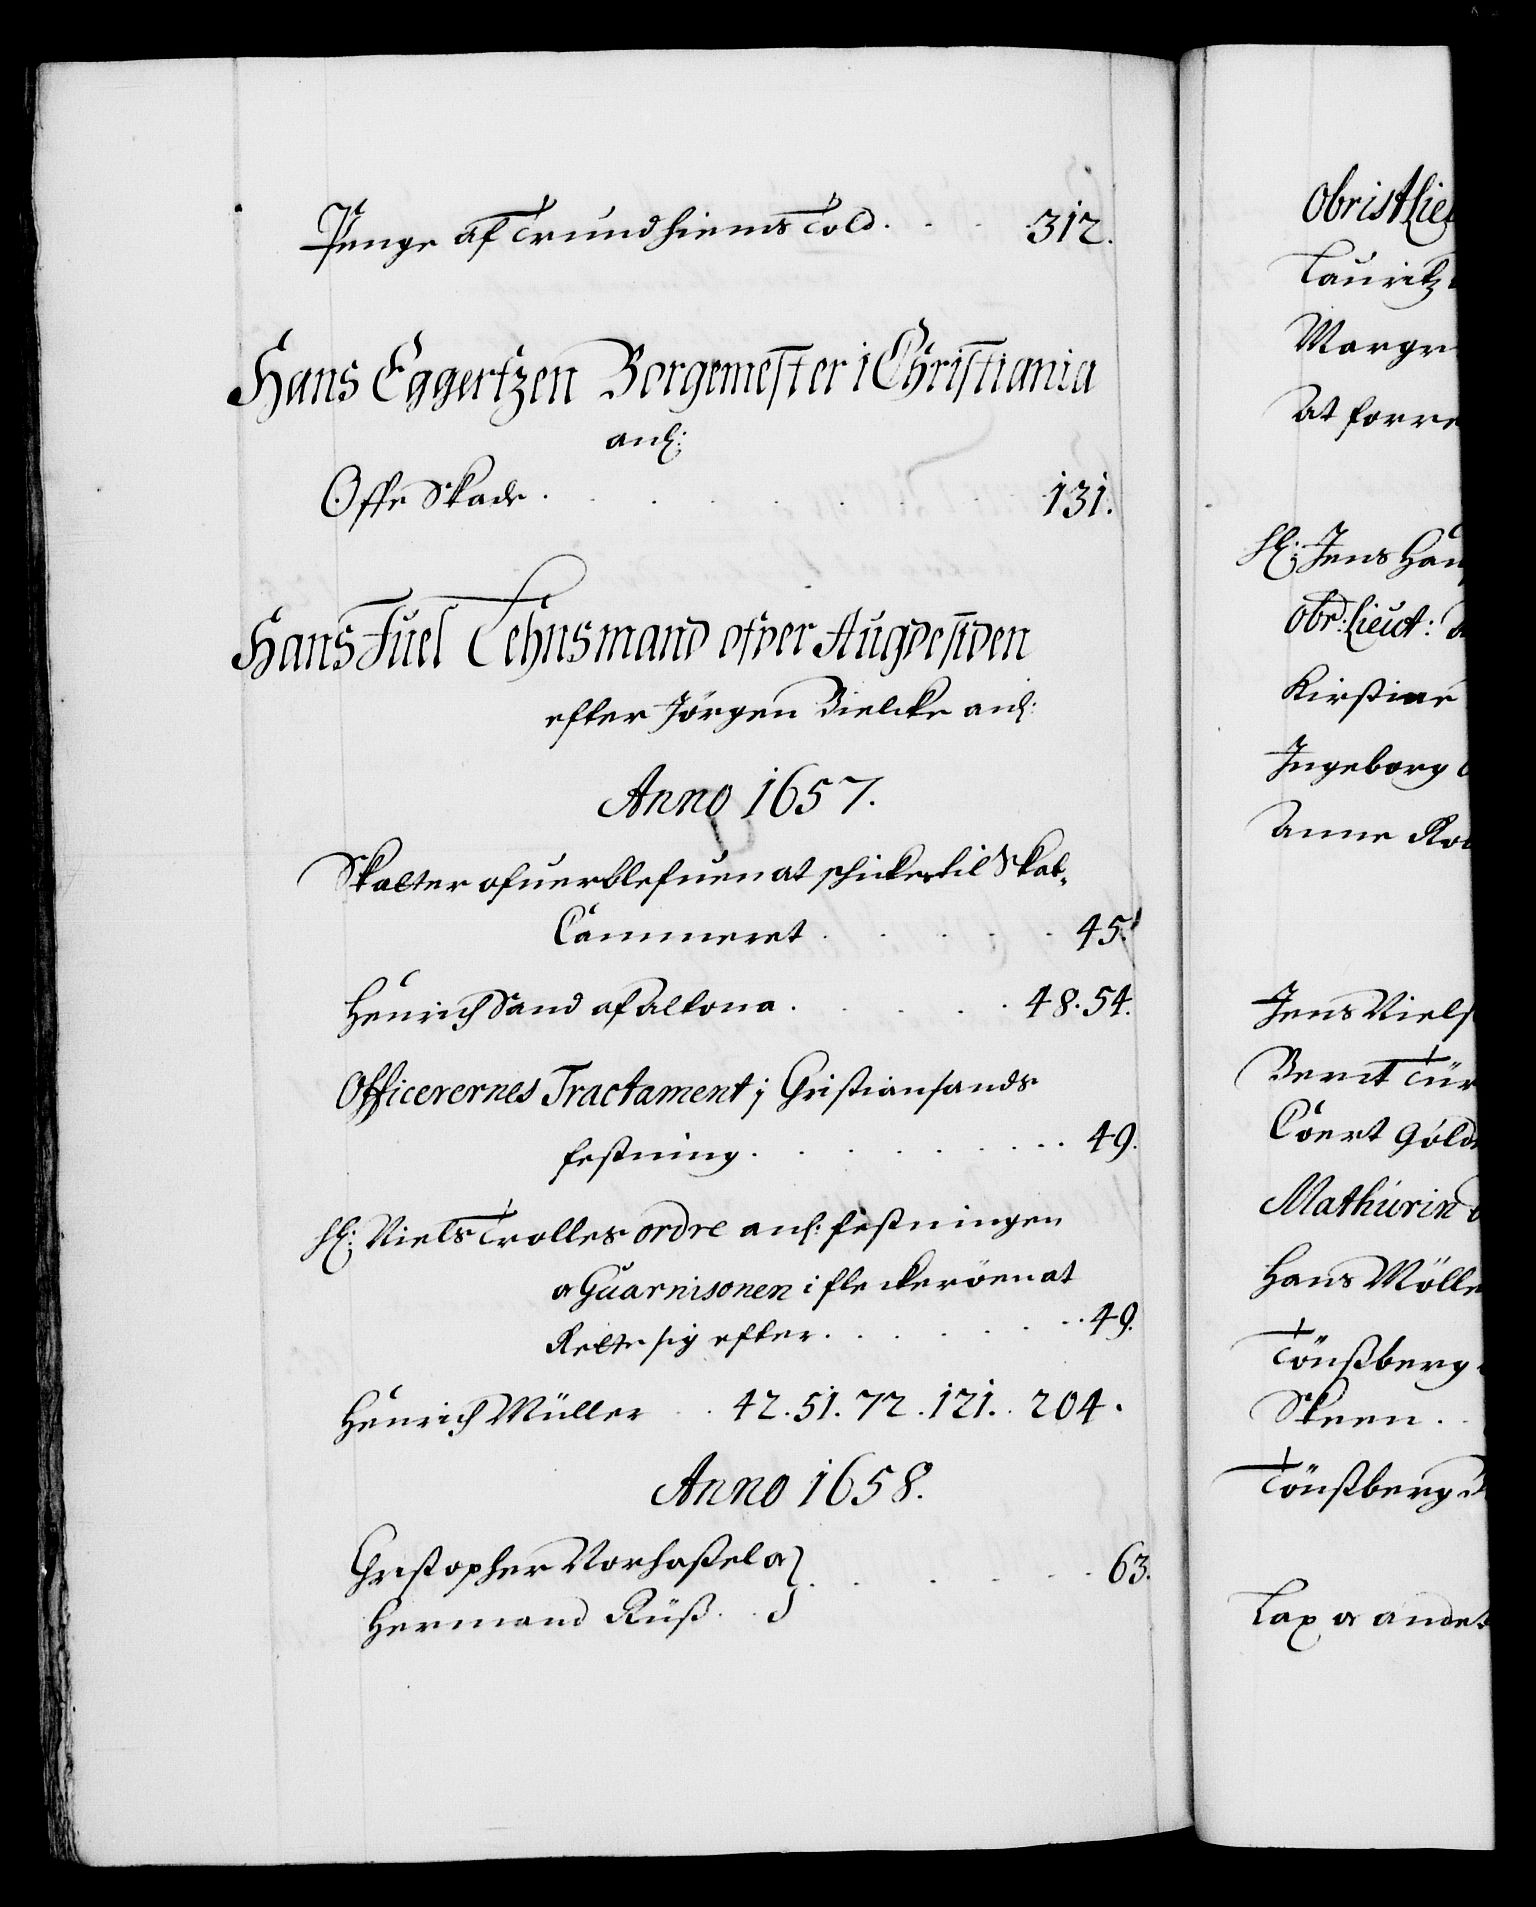 Penge af Trundhiems Told . . . 312.
Hans Eggertzen Borgemester i Christiania
anl:
Offe Skade . . . . . . 131.
Hans Juel Lehnsmand ofver Augdesiden
efter Jörgen Bielcke anl:
Anno 1657.
Skatter ofuerblefuen at schicke til Skat-
Cammeret . . . . . 45.
Henrich Sand af Altona . . . . . 48. 54.
Officerernes Tractament i Christiansands
festning . . . . . . . 49.
Sl: Niels Trolles ordre anl: festningen
oc Guarnisonen i fleckeröen at
Rette sig efter . . . . . . 49.
Henrich Müller . . 42. 51. 72. 121. 204.
Anno 1658.
Christopher Norhassel oc
Hermand Rüss . . . . . . 63.
Obrist Lie
Lauritz
Margre
At forre
Sl: Jens Han
Obr: Lieut:
Kirstine
Ingeborg
Anne Ro
Jens Niels
Bernt Tür
Coert Gold
Mathurin
Hans Mölle
Tönssberg
Skeen .
Tönssberg
Lax oc andet